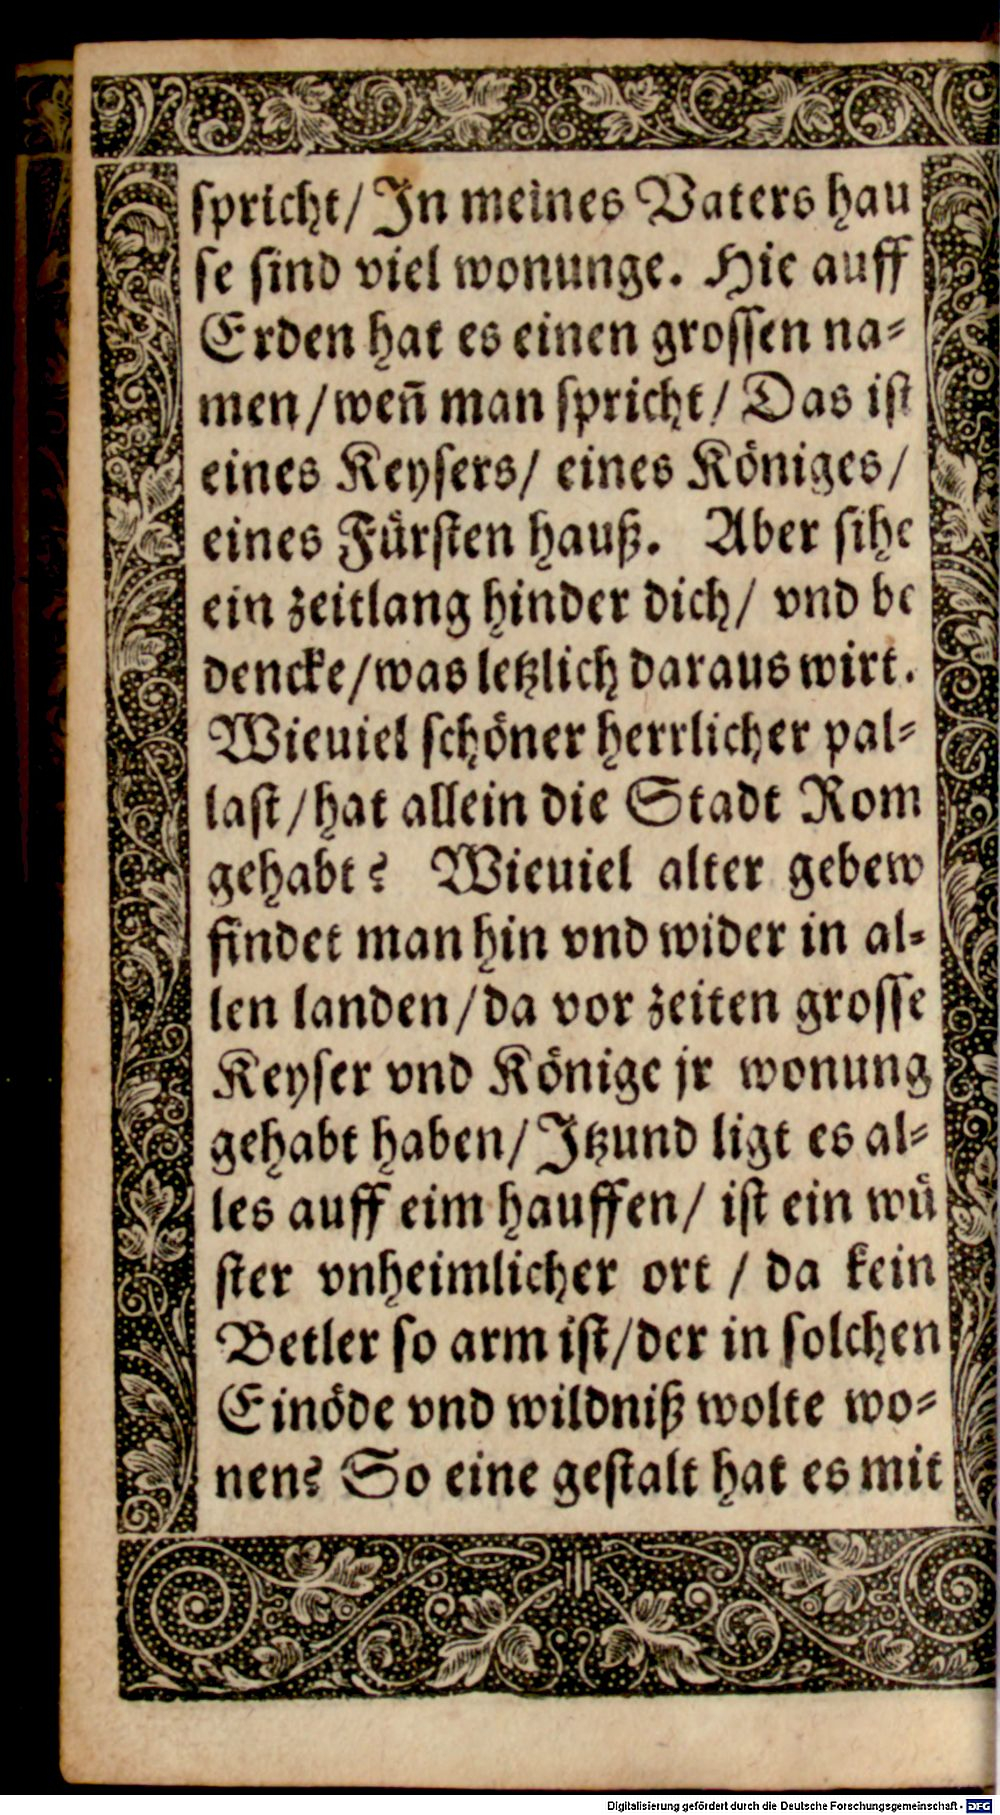 spricht/ In meines Vaters hau
se sind viel wonunge. Hie auff
Erden hat es einen grossen na⸗
men/ weñ man spricht/ Das ist
eines Keysers/ eines Königes/
eines Fürsten hauß. Aber sihe
ein zeitlang hinder dich/ vnd be
dencke/ was letzlich daraus wirt.
Wieuiel schöner herrlicher pal⸗
last/ hat allein die Stadt Rom
gehabt? Wieuiel alter gebew
findet man hin vnd wider in al⸗
len landen/ da vor zeiten grosse
Keyser vnd Könige jr wonung
gehabt haben/ Itzund ligt es al⸗
les auff eim hauffen/ ist ein wü
ster vnheimlicher ort / da kein
Betler so arm ist/ der in solchen
Einöde vnd wildniß wolte wo⸗
nen? So eine gestalt hat es mit
Digitalisierung gefördert durch die Deutsche Forschungsgemeinschaft - DFG